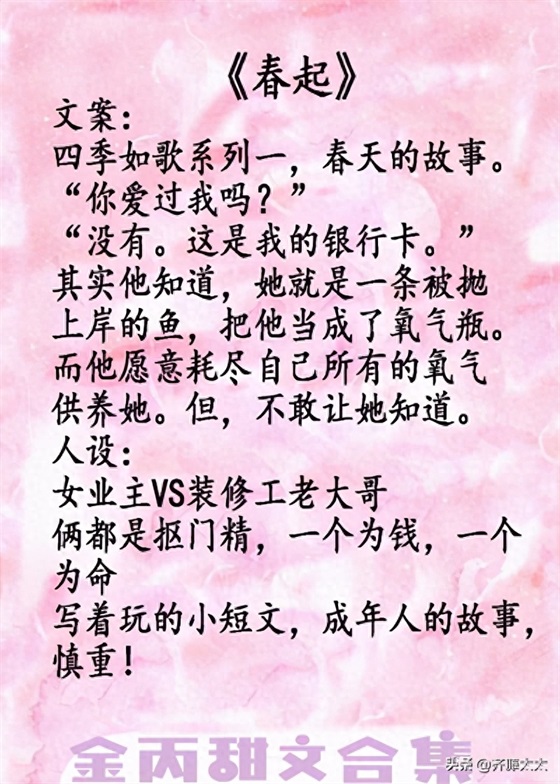 《春起》
文案：
四季如歌系列一，春天的故事。
“你爱过我吗？”
“没有。这是我的银行卡。”
其实他知道，她就是一条被抛
上岸的鱼，把他当成了氧气瓶。
而他愿意耗尽自己所有的氧气
供养她。但，不敢让她知道。
人设：
女业主VS装修工老大哥
俩都是抠门精，一个为钱，一个
为命
写着玩的小短文，成年人的故事，
慎重！
金丙甜文合集
头条 @齐